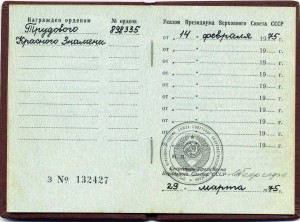 Награжден орденом № ордена
Трудового 898335
Красного Знамени
З № 132427
Указом Президиума Верховного Совета СССР
от „14" февраля 1975
от „ " 19
от „ " 19
от „ " 19
от „ " 19
от „ " 19
от „ " 19
от „ " 19
от „ " 19
Секретарь Президиума
Верховного Совета СССР
„29" марта 1975